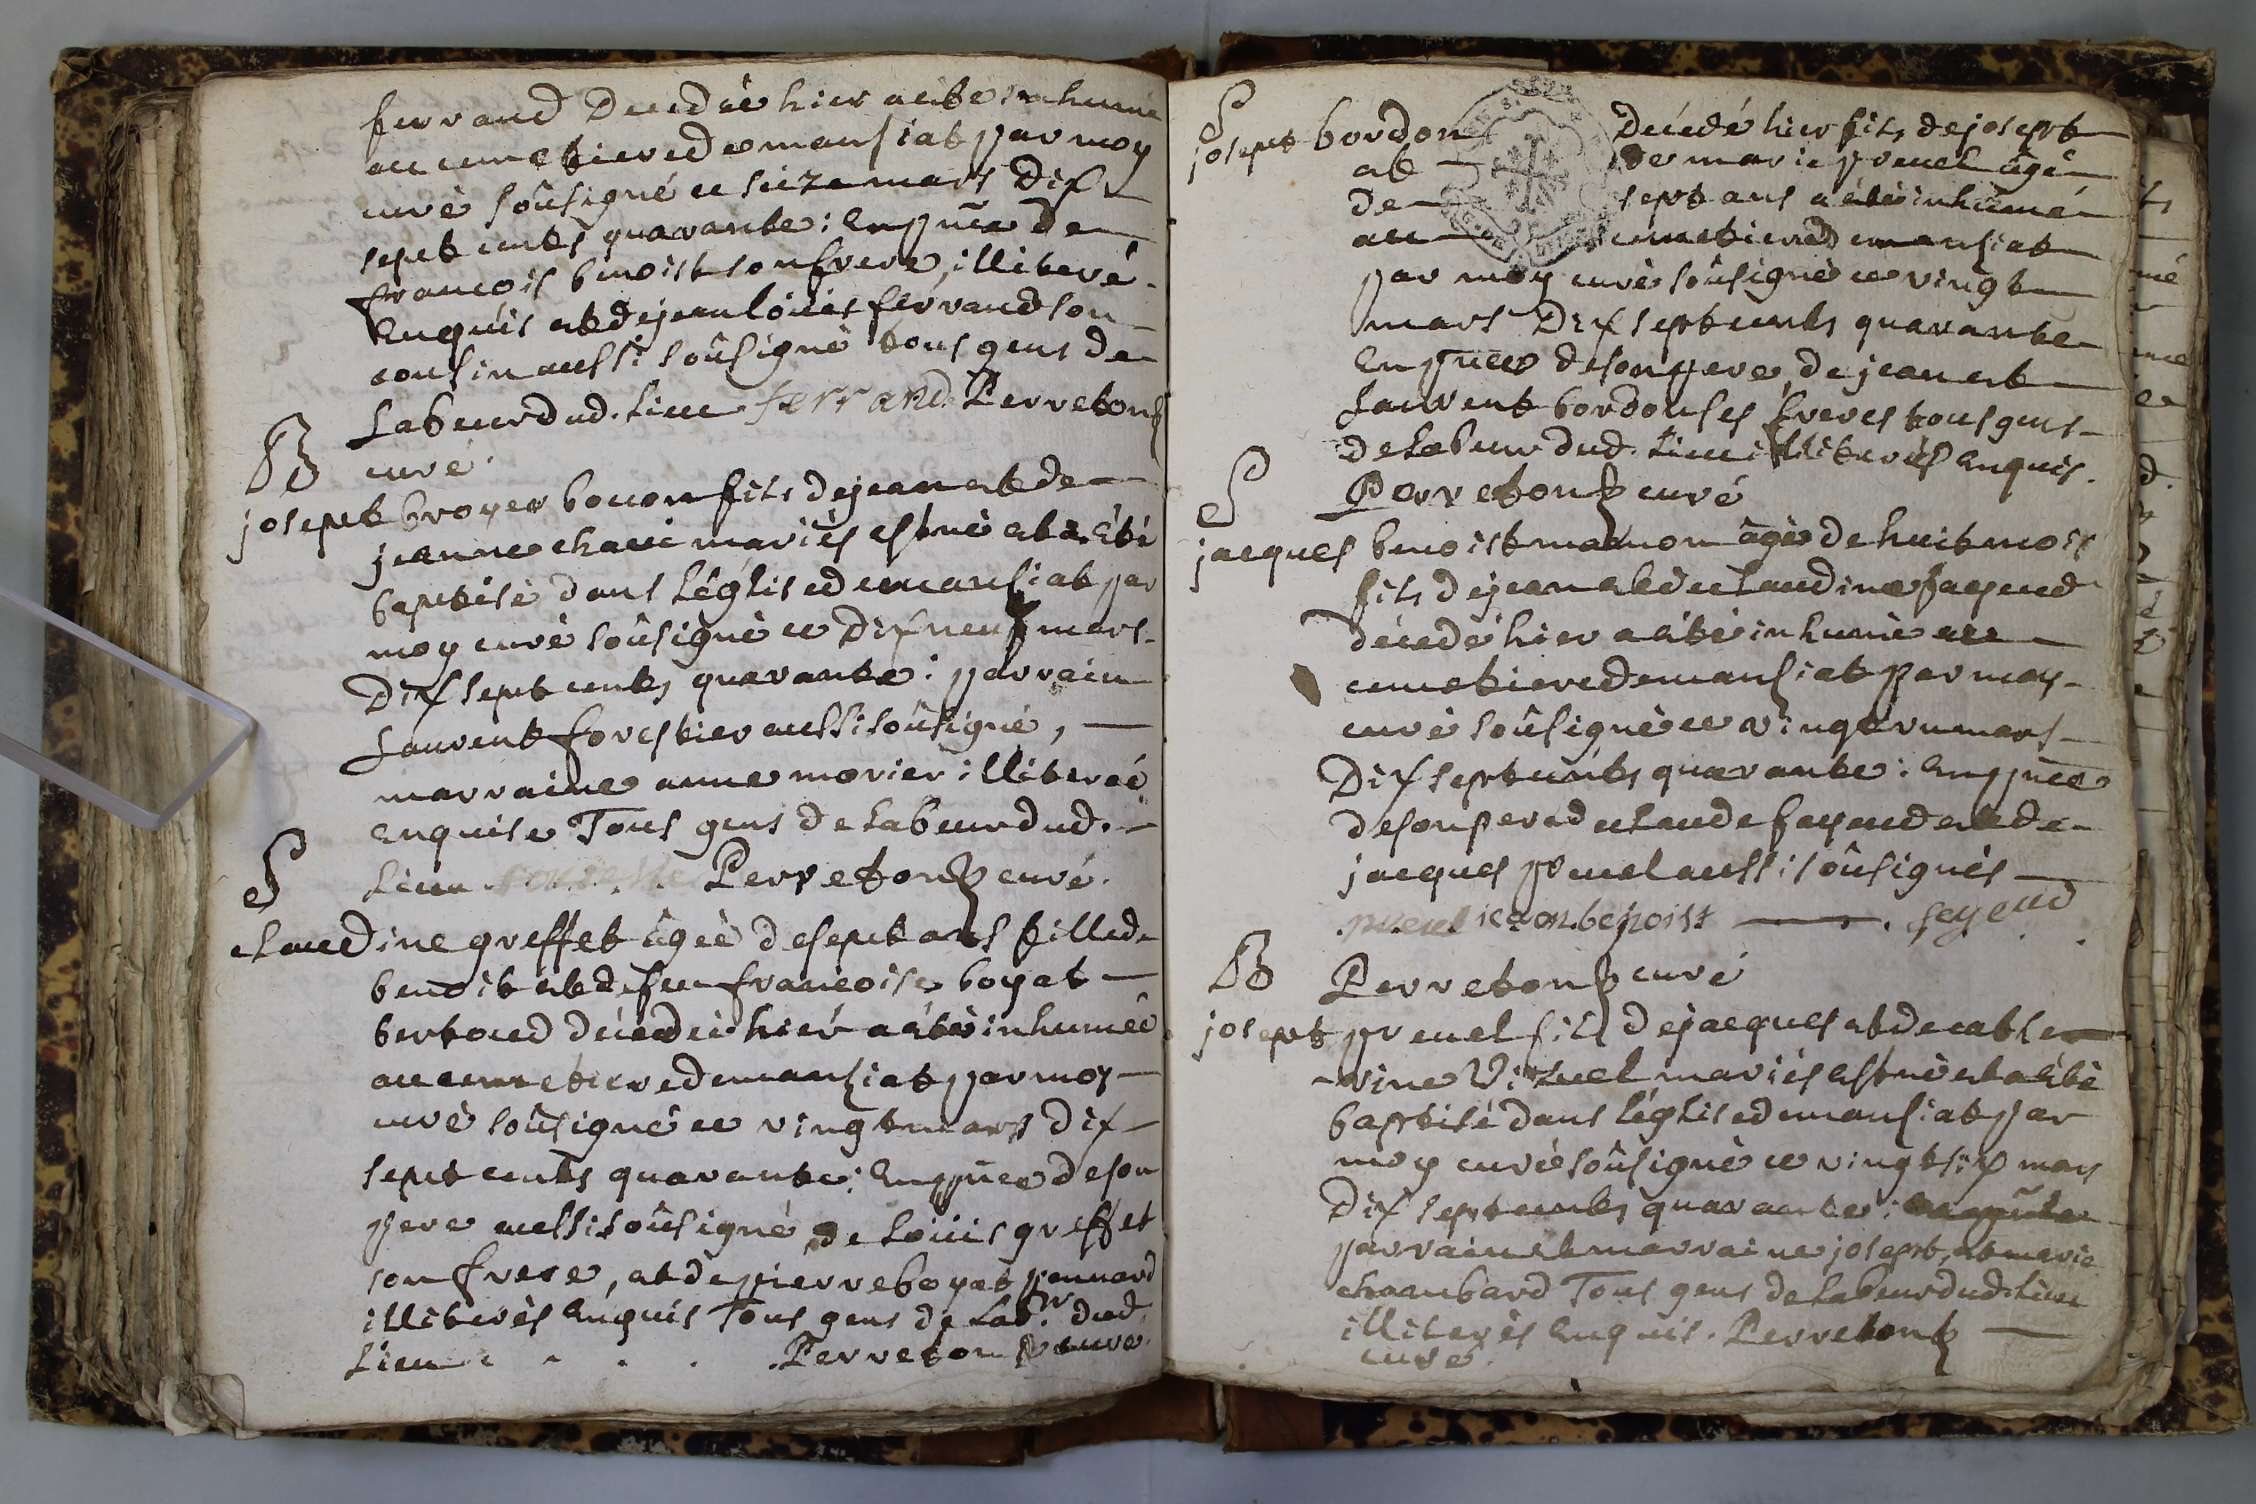 ferrand decedée hier a eté inhumée
au cemetiere de mansiat par moy
curé soûsigné ce seize mars dix
sept cents quarante : en pñce de
francois benoist son frere, illiteré
enquis et de jean loüis ferrand son
cousin aussi soûsigné tous gens de
labeur dud. lieu ferrand Perretony
curé.
B
josept broyer bouon fils de jean et de
jeanne chavi mariés est né et a été
baptisé dans l'églis e de mansiat par
moy curé soûsigné ce dix neuf mars
dix sept cents quarante : parrain
laurent forestier aussi soûsigné,
marraine anne morier illiterée
enquise Tous gens de labeur dud.
lieu Perretony curé.
S
claudine greffet âgée de sept ans fille de
benoit et de feu francoise boyat
bertoud décedée hier a été inhumée
au cemetiere de mansiat par moy
curé soûsigné ce vingt mars dix
sept cents quarante : en pñce de son
pere aussi soûsigné, de loüis greffet
son frere, et de pierre boyat pannard
illiterés enquis Tous gens de lab.r dud.
lieu . . . . Perretony curé.
S
josept bordon décedé hier fils de josept
et de marie preuel âgé
de sept ans a été inhumé
au cemetiere de mansiat
par moy curé soûsigné ce vingt
mars dix sept cents quarante
en pñce de son pere, de jean et
laurent bordon ses freres tous gens
de labeur dud. lieu illiterés enquis.
Perretony curé
S
jacques benoist âgé de huit mois
fils de jean et de claudine fayeud
décedé hier a été inhumé au
cemetiere de mansiat par moy
curé soûsigné ce vingt un mars
dix sept cents quarante : en pñce
de son pere de claude fayeud et de
jacques preuel aussi soûsignés
preuel jean benoist fayeud
B Perretony curé
josept preuel fils de jacques et de cathe
rine Vizuel mariés est né et a été
baptisé dans l'églis e de mansiat par
moy curé soûsigné ce vingt six mars
dix sept cents quarante :
parrain et marraine josept, et marie
chambard Tous gens de labeur dud. lieu
illiterés enquis. Perretony
curé.